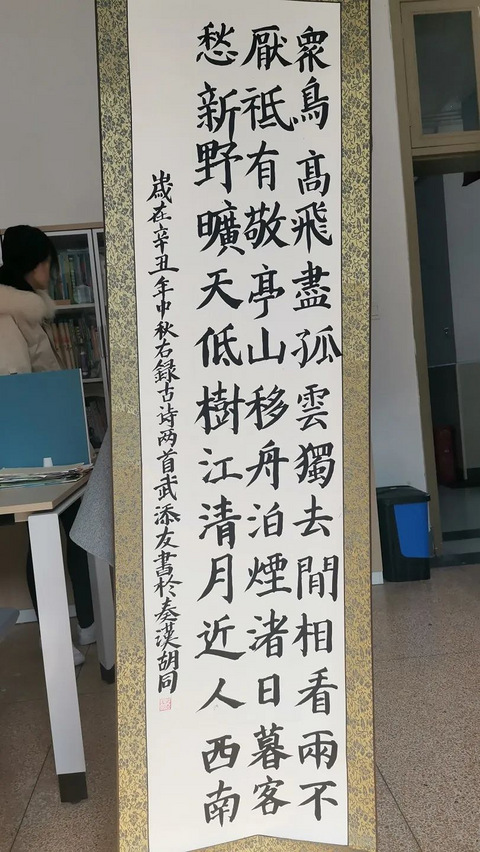 衆鳥髙飛盡孤雲獨去閒相看兩不
厭祗有敬亭山移舟泊煙渚日暮客
愁新野曠天低樹江清月近人西南
歲在辛丑年中秋右録古诗两首武添友書於秦漢胡同